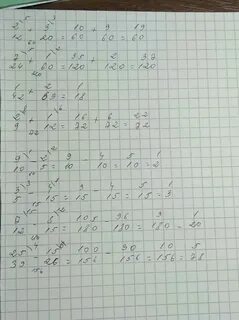 2/12 + 3/20 = 10/60 + 9/60 = 19/60
7/24 + 1/60 = 35/120 + 2/120 = 37/120
1/42 + 2/63 = 1/18
2/9 + 1/12 = 16/72 + 6/72 = 22/72
9/10 - 2/5 = 9/10 - 4/10 = 5/10 = 1/2
3/5 - 4/15 = 9/15 - 4/15 = 5/15 = 1/3
7/12 - 8/15 = 105/180 - 96/180 = 9/180 = 1/20
25/39 - 15/26 = 100/156 - 90/156 = 10/156 = 5/78